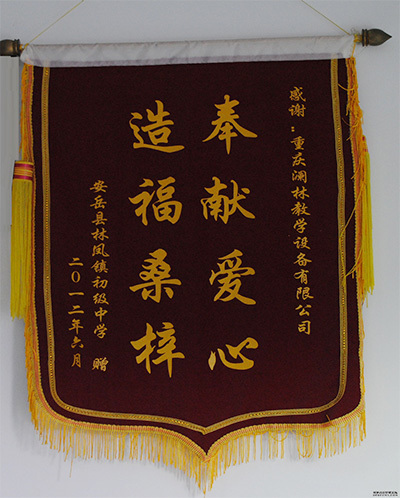 感谢：重庆澜林教学设备有限公司
奉献爱心
造福桑梓
安岳县林凤镇初级中学 赠
二〇一二年六月